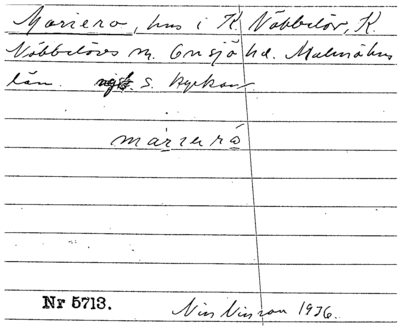 Mariero, hus i K. Nöbbelöv, K.
Nöbbelövs sn. Onsjö hd. Malmöhus
län. s. kyrkan
mariero
Nr 5713.
Nils Nilsson 1936.